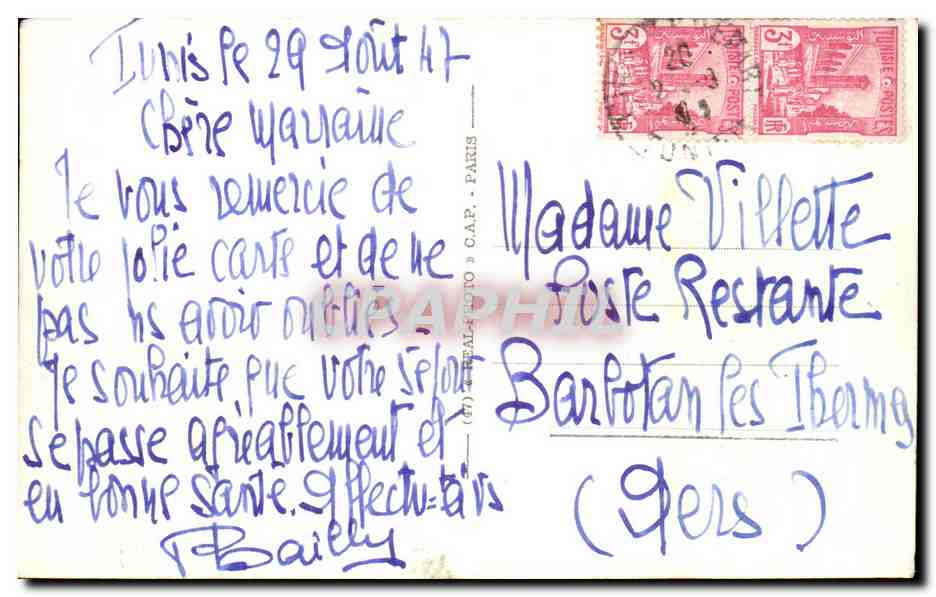 Tunis le 29 Août 47
Chère Marraine
Je vous remercie de
votre jolie carte et de ne
pas ns avoir oubliés.
Je souhaite que votre séjour
se passe agréablement et
en bonne santé. Affectu-
Bailly
(17) « REAL-PHOTO » C.A.P. - PARIS
CPAPHIL
TUNISIE POSTES
3F
RF
TUNISIE POSTES
3F
RF
Madame Villette
Poste Restante
Barbotan les Thermes
(Gers)